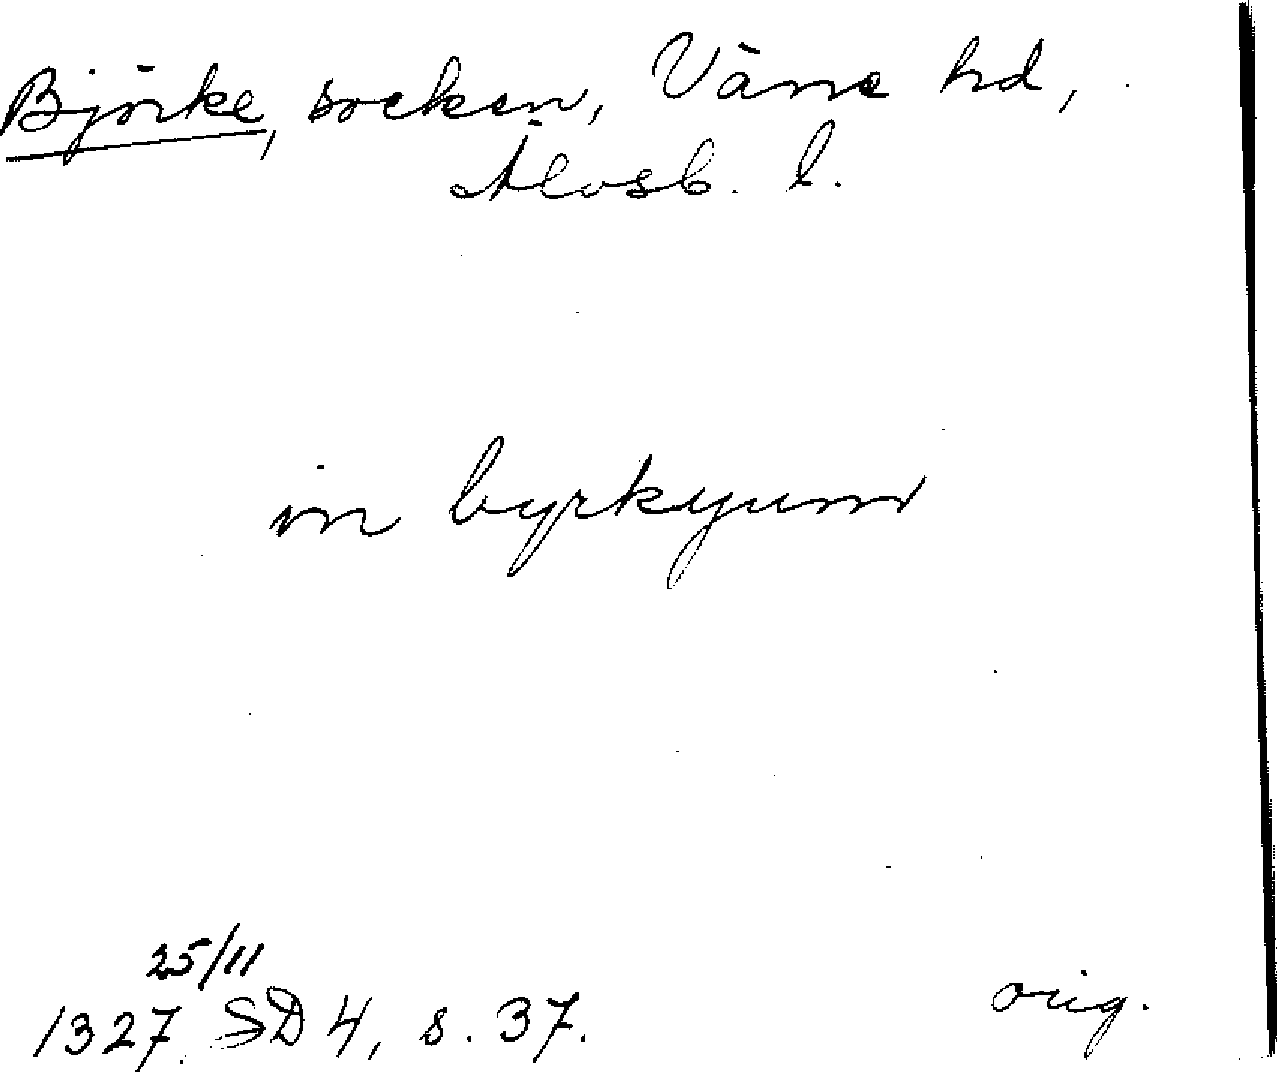 Björke, socken, Väne hd,
Älvsb. l.
in byrkyum
25/11
1327. SD 4, s. 37.
orig.